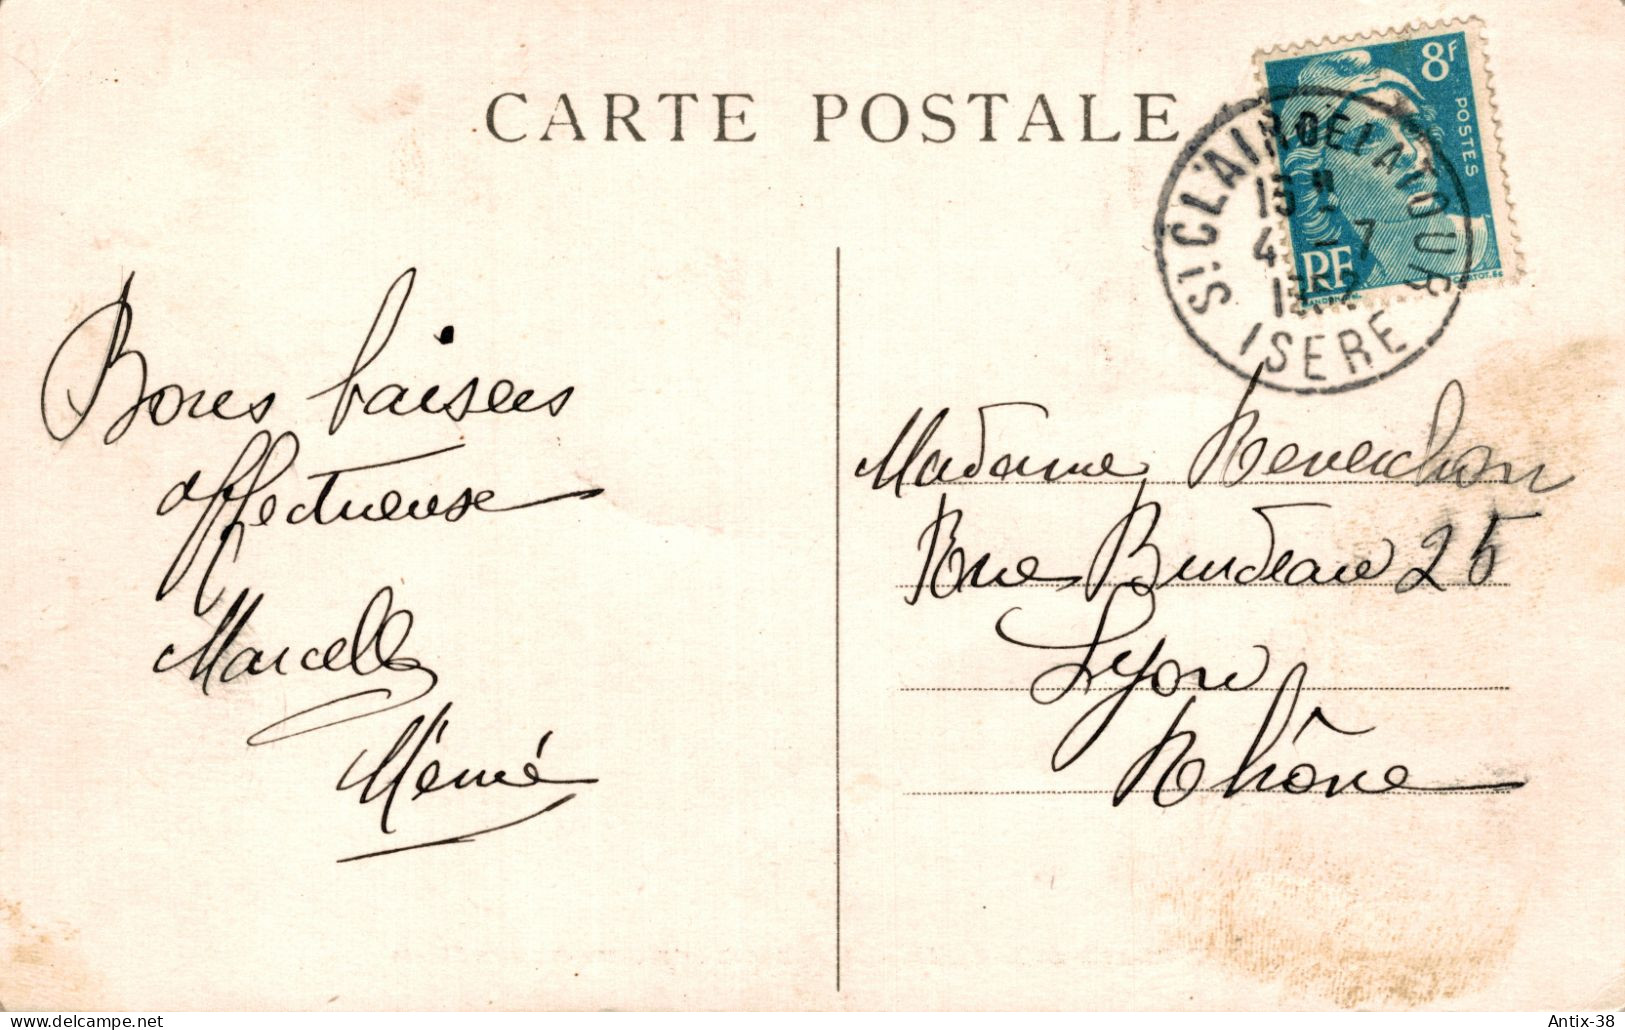 CARTE POSTALE
8F
POSTES
RF
St CLAIR DE LA TOUR
15H
4 -7
ISERE
Bons baisers
affectueuse
Marcelle
Mémé
Madame
Rue Burdeau 25
Lyon
Rhône
delcampe.net
Antix-38